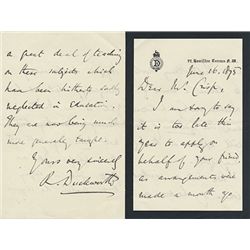 77, Hamilton Terrace, N.W.
June 16, 1895
Dear Mr Crisp,
I am sorry to say
it is too late this
year to apply on
behalf of your friend
as arrangements were
made a month ago
a great deal of teaching
on these subjects which
has been hitherto sadly
neglected in education.
They are now being much
more generally taught.
Yours very sincerely
R. Duckworth